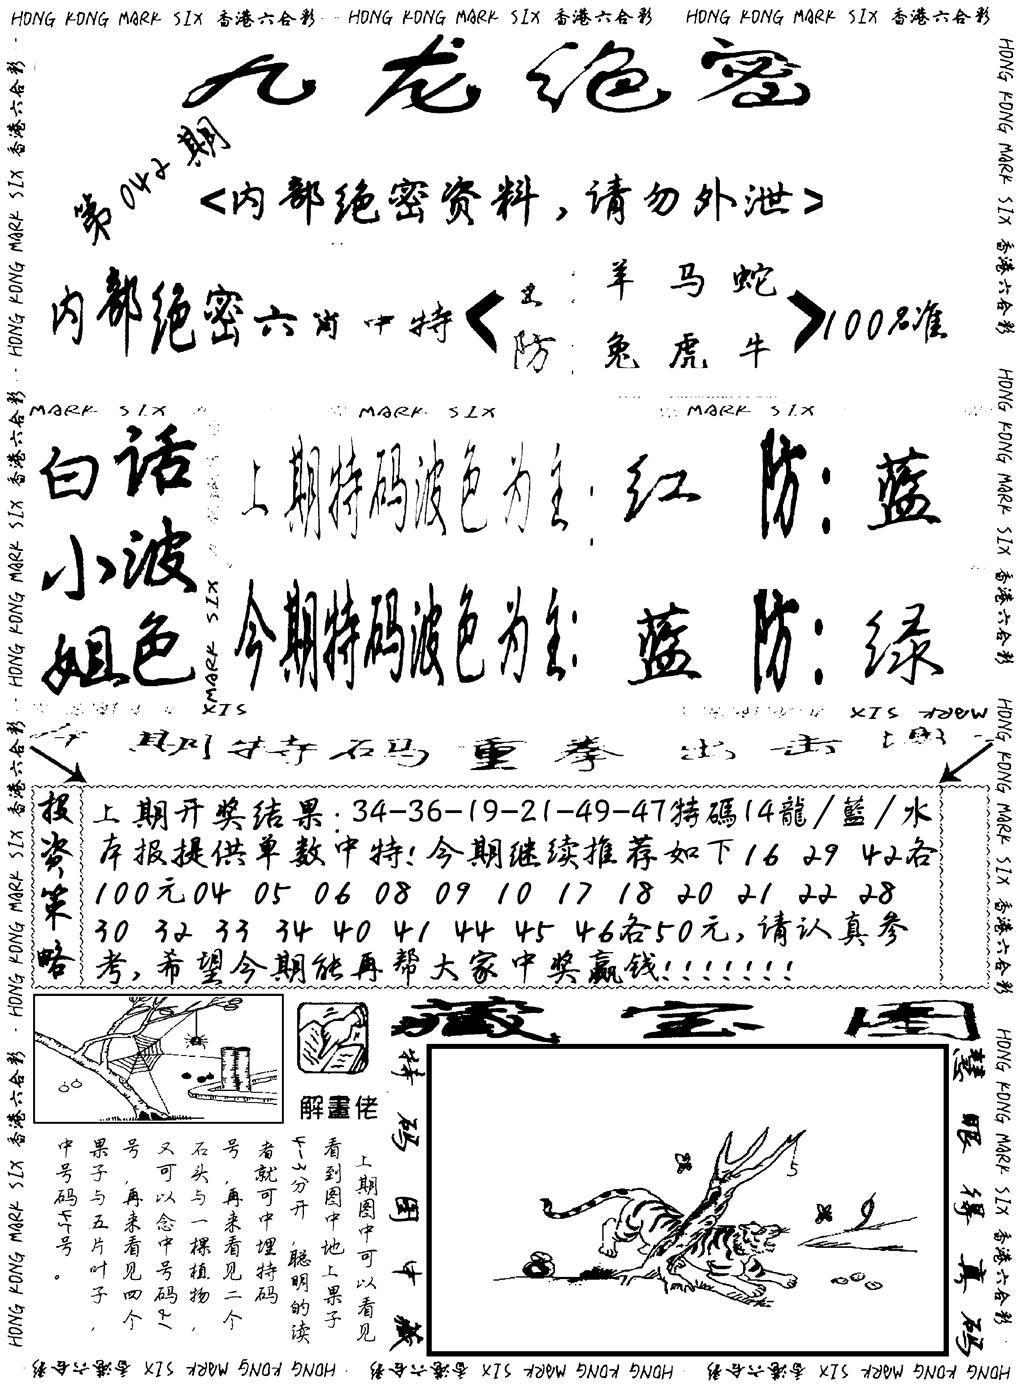 HONG KONG MARK SIX 香港六合彩 HONG KONG MARK SIX 香港六合彩 HONG KONG MARK SIX 香港六合彩
九龙绝密
第042期
<内部绝密资料,请勿外泄>
内部绝密六肖中特
主:羊马蛇
防:兔虎牛
100%准
MARK SIX MARK SIX MARK SIX
白话
小波
姐色
上期特码波色为主:红 防:蓝
今期特码波色为主:蓝 防:绿
MARK SIX
SIX
MARK SIX
今期特码重拳出击
投资策略
上期开奖结果:34-36-19-21-49-47特碼14龍/藍/水
本报提供单数中特!今期继续推荐如下16 29 42各
100元04 05 06 08 09 10 17 18 20 21 22 28
30 32 33 34 40 41 44 45 46各50元,请认真参
考,希望今期能再帮大家中奖赢钱!!!!!!!
解畫佬
上期图中可以看见
看到图中地上果子
分开,聪明的读
者就可中埋特码
号,再来看见二个
石头与一棵植物,
又可以念中号码
号,再来看见四个
果子与五片叶子,
中号码
号。
藏宝图
特码图中藏
慧眼得真码
5
HONG KONG MARK SIX 香港六合彩
HONG KONG MARK SIX 香港六合彩
HONG KONG MARK SIX 香港六合彩
HONG KONG MARK SIX 香港六合彩
HONG KONG MARK SIX 香港六合彩
HONG KONG MARK SIX 香港六合彩
HONG KONG MARK SIX 香港六合彩
HONG KONG MARK SIX 香港六合彩
HONG KONG MARK SIX 香港六合彩 HONG KONG MARK SIX 香港六合彩 HONG KONG MARK SIX 香港六合彩